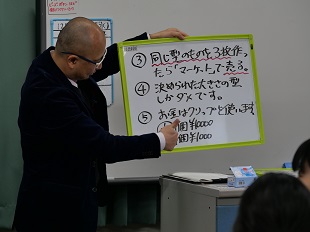 ③ 同じ型のものを3枚作っ
たら「マーケット」で売る。
④ 決められた大きさの型
しかダメです。
⑤ お金はクリップを使います
個¥10000
個¥1000